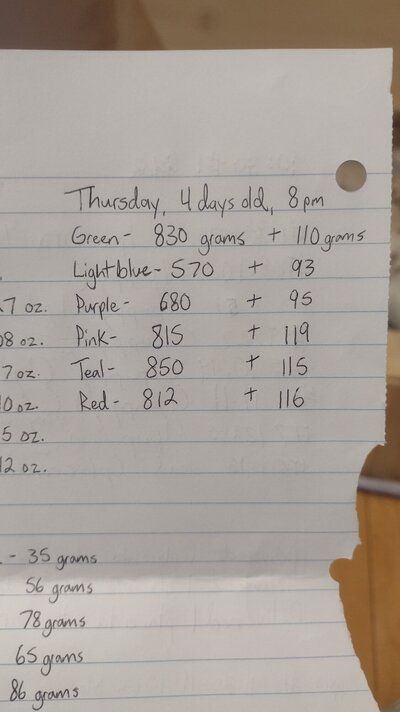 Thursday, 4 days old, 8pm
Green- 830 grams + 110 grams
Light blue- 570 + 93
7 oz. Purple- 680 + 95
8 oz. Pink- 815 + 119
7 oz. Teal- 850 + 115
0 oz. Red- 812 + 116
5 oz.
12 oz.
- 35 grams
56 grams
78 grams
65 grams
86 grams